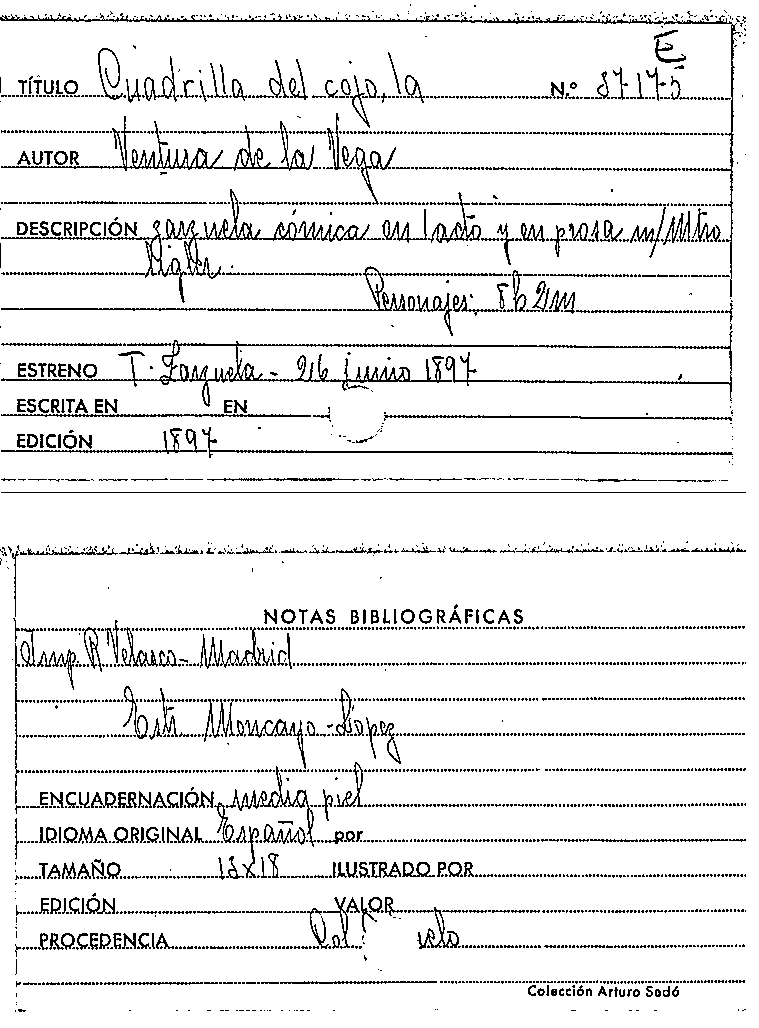 E
TÍTULO Cuadrilla del cojo, la N.º 87-17-5
AUTOR Ventura de la Vega
DESCRIPCIÓN zarzuela cómica en 1 acto y en prosa m/Mtro
Personajes: 8h 2m
ESTRENO T. Zarzuela - 26 Junio 1897
ESCRITA EN EN
EDICIÓN 1897
NOTAS BIBLIOGRÁFICAS
Imp. R Velasco - Madrid
Estr Moncayo - López
ENCUADERNACIÓN media piel
IDIOMA ORIGINAL Español por
TAMAÑO 13x18 ILUSTRADO POR
EDICIÓN VALOR
PROCEDENCIA Col
Colección Arturo Sedó